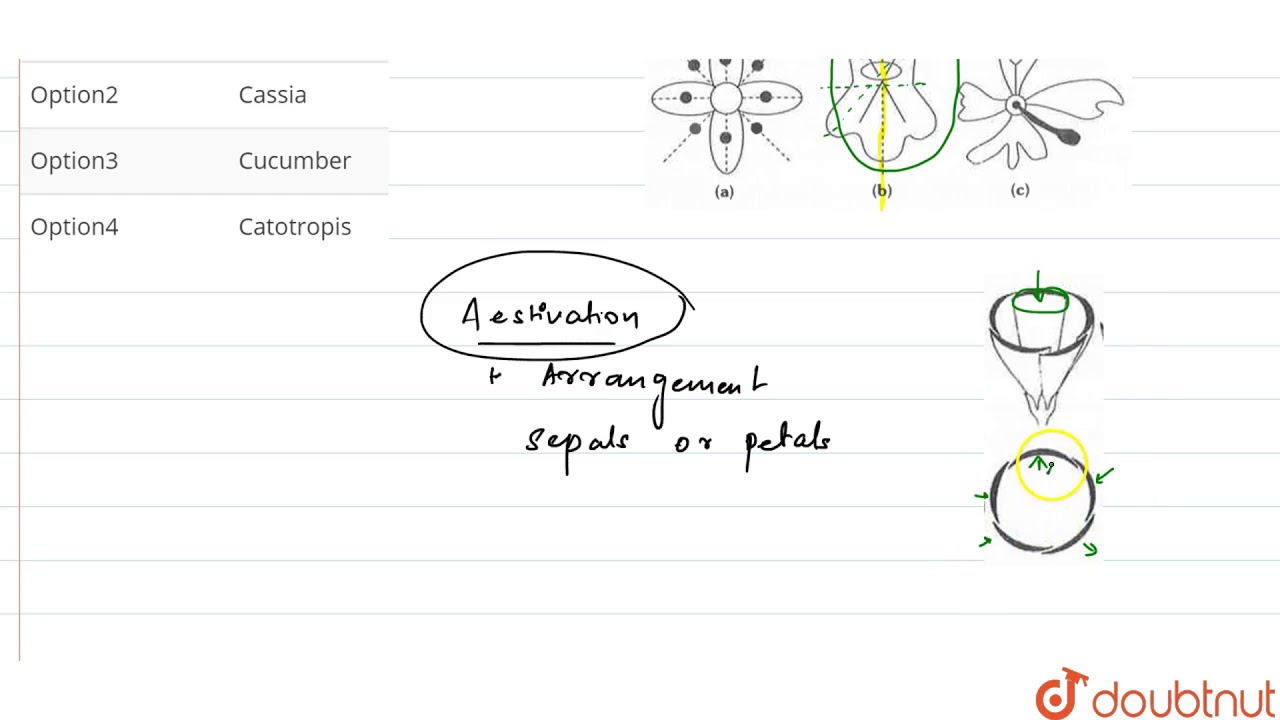 Option2 Cassia
Option3 Cucumber
Option4 Catotropis
(a) (b) (c)
Aestivation
Arrangement
sepals or petals
doubtnut